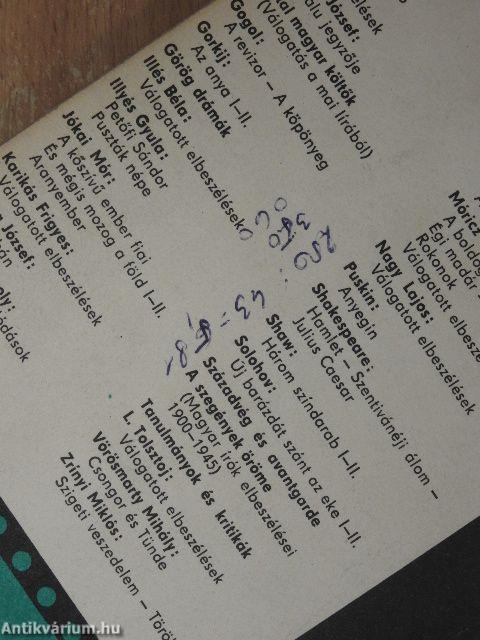 József:
alu jegyzője
elbeszélések
ai magyar költők
(Válogatás a mai lírából)
Gogol:
A revizor — A köpönyeg
Gorkij:
Az anya I–II.
Görög drámák
Illés Béla:
Válogatott elbeszélések
Illyés Gyula:
Petőfi Sándor
Puszták népe
Jókai Mór:
A kőszívű ember fiai
És mégis mozog a föld I–II.
Aranyember
Karikás Frigyes:
Válogatott elbeszélések
József:
Móricz
A boldog
Égi madár
Rokonok
Válogatott elbeszé
Nagy Lajos:
Válogatott elbeszélések
Puskin:
Anyegin
Shakespeare:
Hamlet — Szentivánéji álom —
Julius Caesar
Shaw:
Három színdarab I–II.
Solohov:
Új barázdát szánt az eke I–II.
Századvég és avantgarde
A szegények öröme
(Magyar írók elbeszélései
1900–1945)
Tanulmányok és kritikák
L. Tolsztoj:
Válogatott elbeszélések
Vörösmarty Mihály:
Csongor és Tünde
Zrínyi Miklós:
Szigeti veszedelem — Törö
Antikvárium.hu